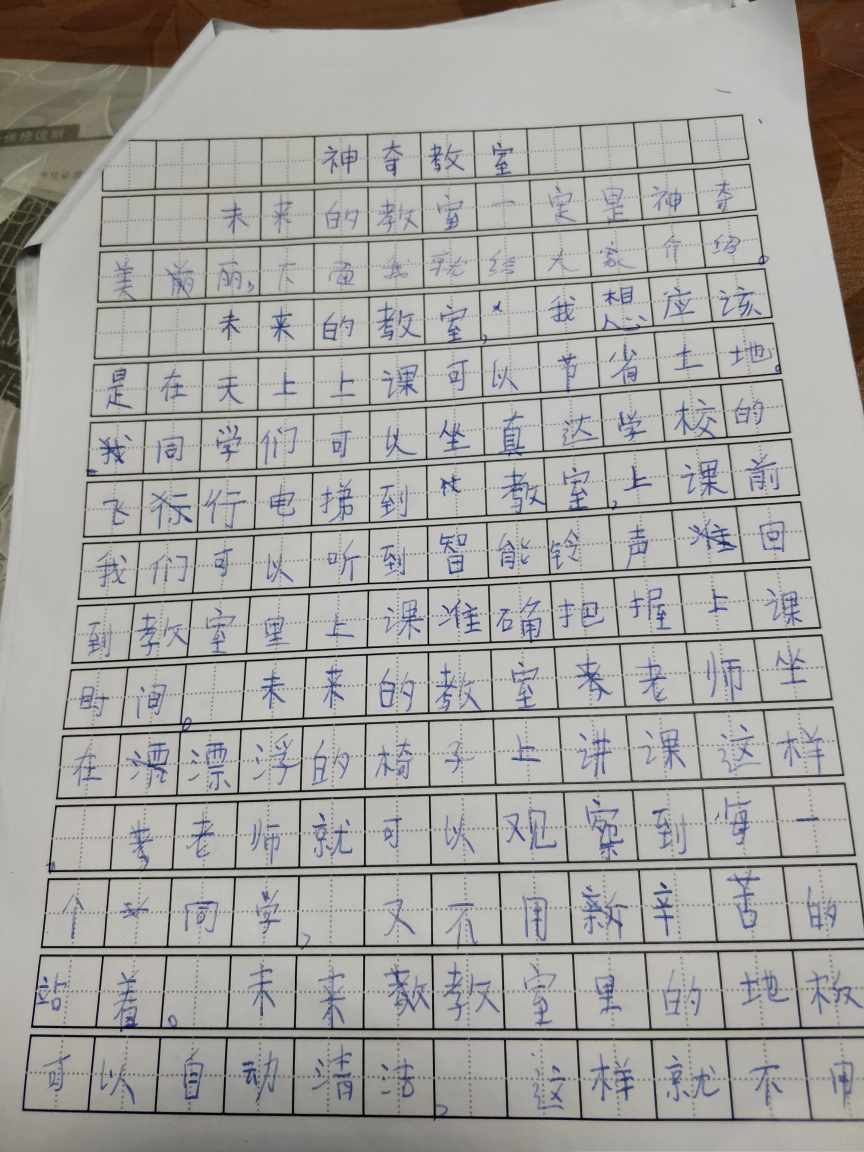 神奇教室
未来的教室一定是神奇
美丽,下面我就给大家介绍。
未来的教室,我想应该
是在天上上课可以节省土地。
同学们可以坐真达学校的
飞行电梯到教室,上课前
我们可以听到智能铃声回
到教室里上课准确把握上课
时间。未来的教室老师坐
在漂浮的椅子上讲课这样
老师就可以观察到每一
个同学,又不用辛苦的
站着。未来教室里的地板
可以自动清洁,这样就不用